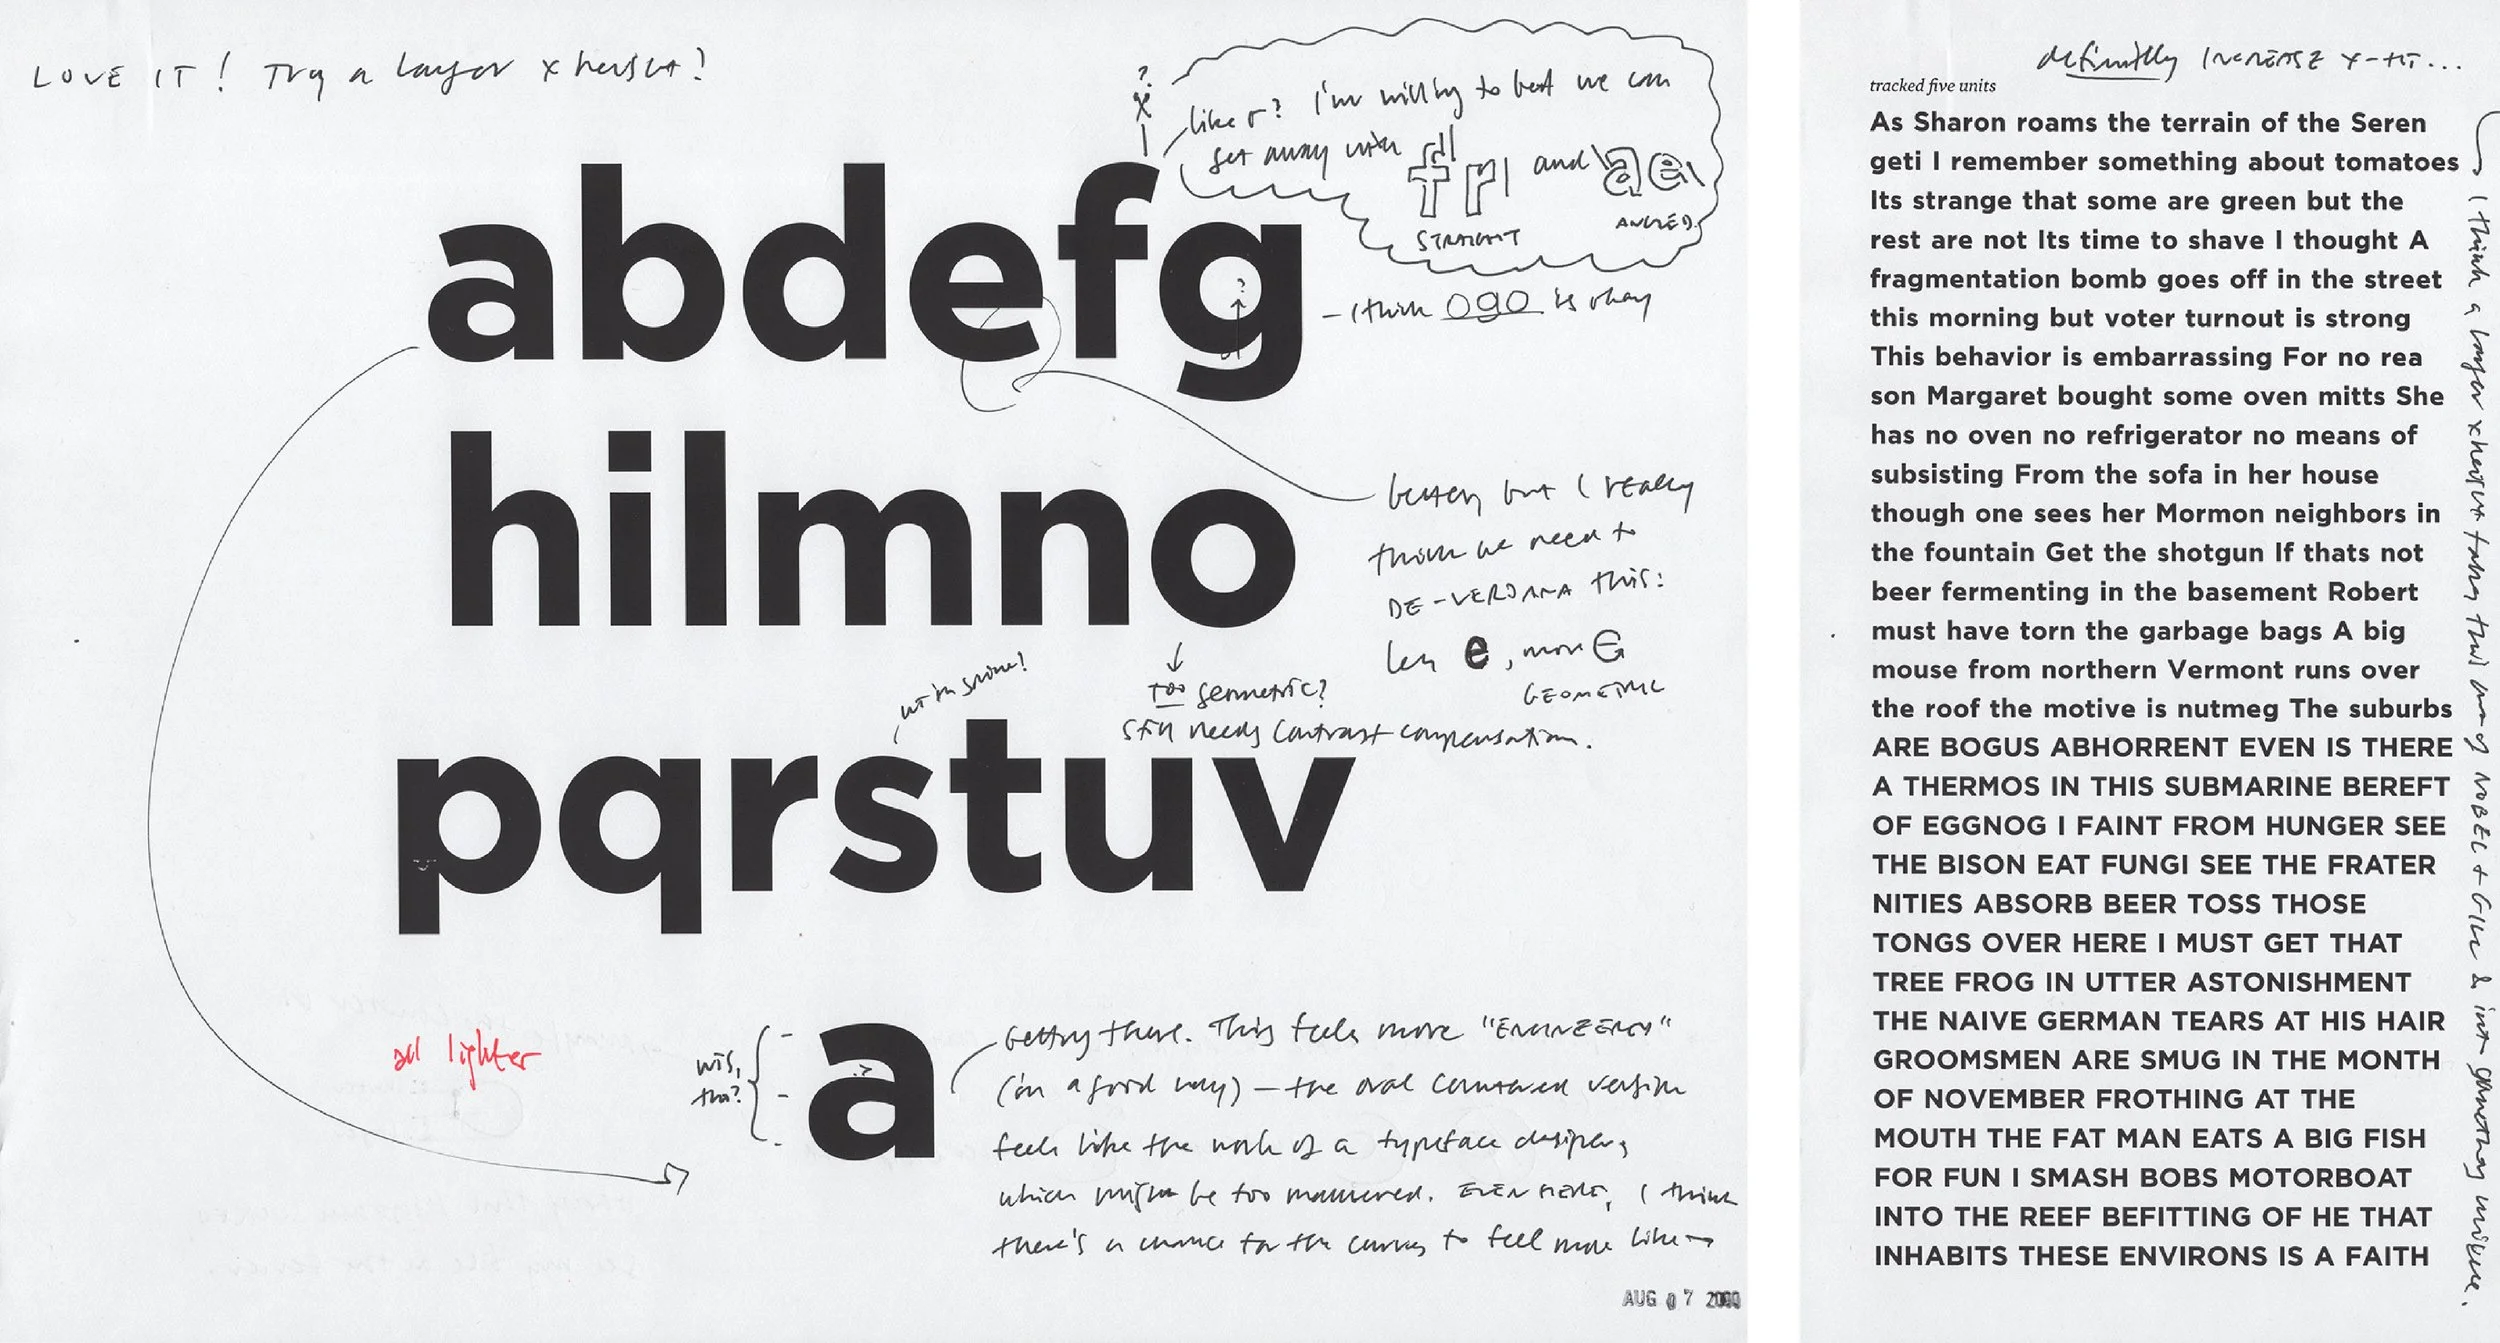 LOVE IT! Try a larger x height?
?
like r? I'm willing to bet we can
get away with fr and ae
STRAIGHT
ANGLED.
abdefg
?
– I think ogo is okay
hilmno
better, but I really
think we need to
DE-VERDANA THIS:
less e, more e
GEOMETRIC
too geometric?
still needs contrast compensation.
wt in spine!
pqrstuv
all lighter
wts,
tho?
a
Getting there. This feels more "ENGINEERED"
(in a good way) — the oval countered version
feels like the work of a typeface designer,
which might be too mannered. EVEN HERE, I think
there's a chance for the curves to feel more like →
AUG 07 2000
definitely INCREASE X-HT...
tracked five units
As Sharon roams the terrain of the Seren
geti I remember something about tomatoes
Its strange that some are green but the
rest are not Its time to shave I thought A
fragmentation bomb goes off in the street
this morning but voter turnout is strong
This behavior is embarrassing For no rea
son Margaret bought some oven mitts She
has no oven no refrigerator no means of
subsisting From the sofa in her house
though one sees her Mormon neighbors in
the fountain Get the shotgun If thats not
beer fermenting in the basement Robert
must have torn the garbage bags A big
mouse from northern Vermont runs over
the roof the motive is nutmeg The suburbs
ARE BOGUS ABHORRENT EVEN IS THERE
A THERMOS IN THIS SUBMARINE BEREFT
OF EGGNOG I FAINT FROM HUNGER SEE
THE BISON EAT FUNGI SEE THE FRATER
NITIES ABSORB BEER TOSS THOSE
TONGS OVER HERE I MUST GET THAT
TREE FROG IN UTTER ASTONISHMENT
THE NAIVE GERMAN TEARS AT HIS HAIR
GROOMSMEN ARE SMUG IN THE MONTH
OF NOVEMBER FROTHING AT THE
MOUTH THE FAT MAN EATS A BIG FISH
FOR FUN I SMASH BOBS MOTORBOAT
INTO THE REEF BEFITTING OF HE THAT
INHABITS THESE ENVIRONS IS A FAITH
I think a larger x height takes this out of NOBEL + GILL & into something unique.